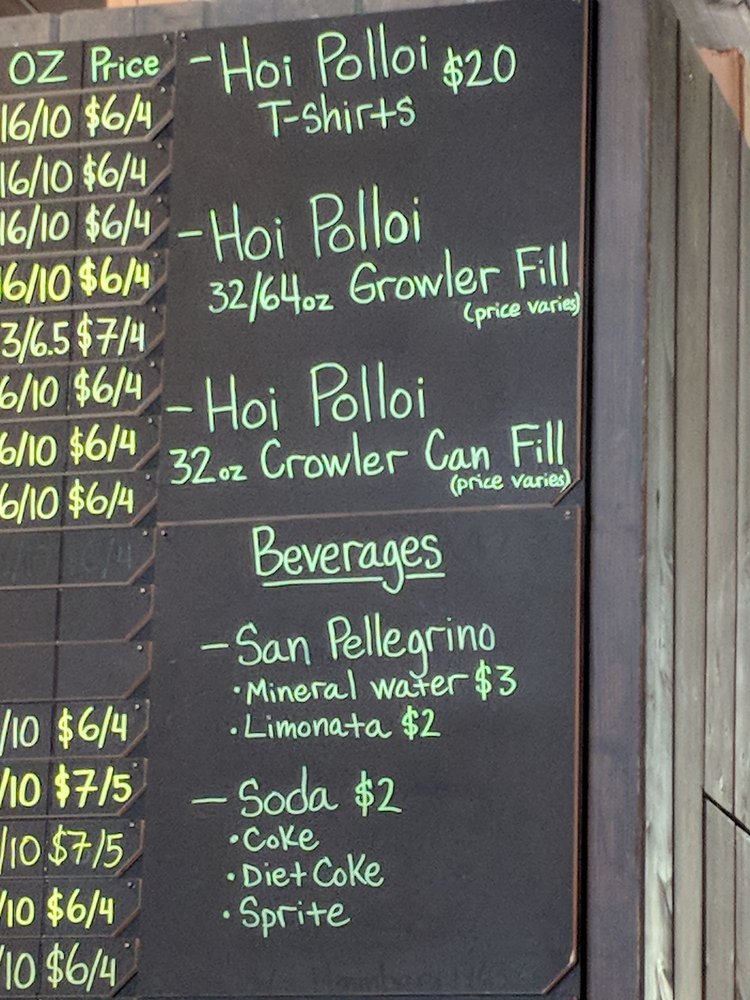 OZ Price
16/10 $6/4
16/10 $6/4
16/10 $6/4
16/10 $6/4
3/6.5 $7/4
6/10 $6/4
6/10 $6/4
6/10 $6/4
/10 $6/4
/10 $7/5
/10 $7/5
/10 $6/4
/10 $6/4
- Hoi Polloi $20
T-shirts
- Hoi Polloi
32/64oz Growler Fill
(price varies)
- Hoi Polloi
32oz Crowler Can Fill
(price varies)
Beverages
- San Pellegrino
• Mineral water $3
• Limonata $2
- Soda $2
• Coke
• Diet Coke
• Sprite